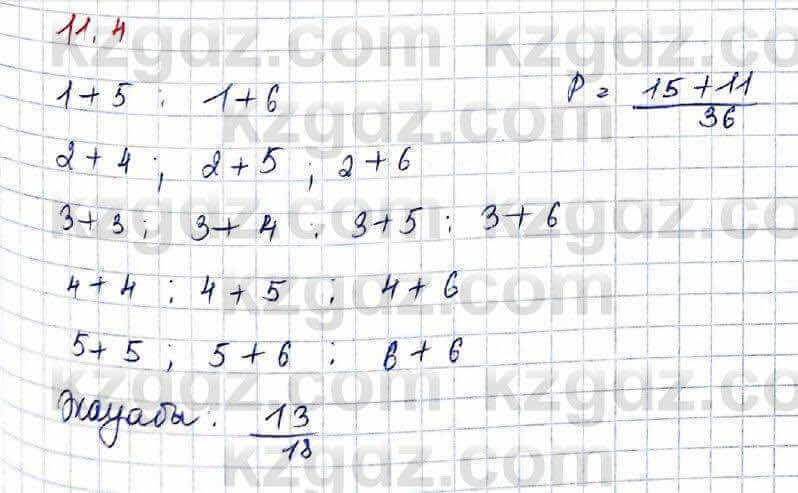 11.4
1+5 : 1+6
P = 15+11 / 36
2+4 ; 2+5 ; 2+6
3+3 ; 3+4 : 3+5 : 3+6
4+4 : 4+5 : 4+6
5+5 ; 5+6 : 6+6
Жауабы: 13 / 18
kzgdz.com